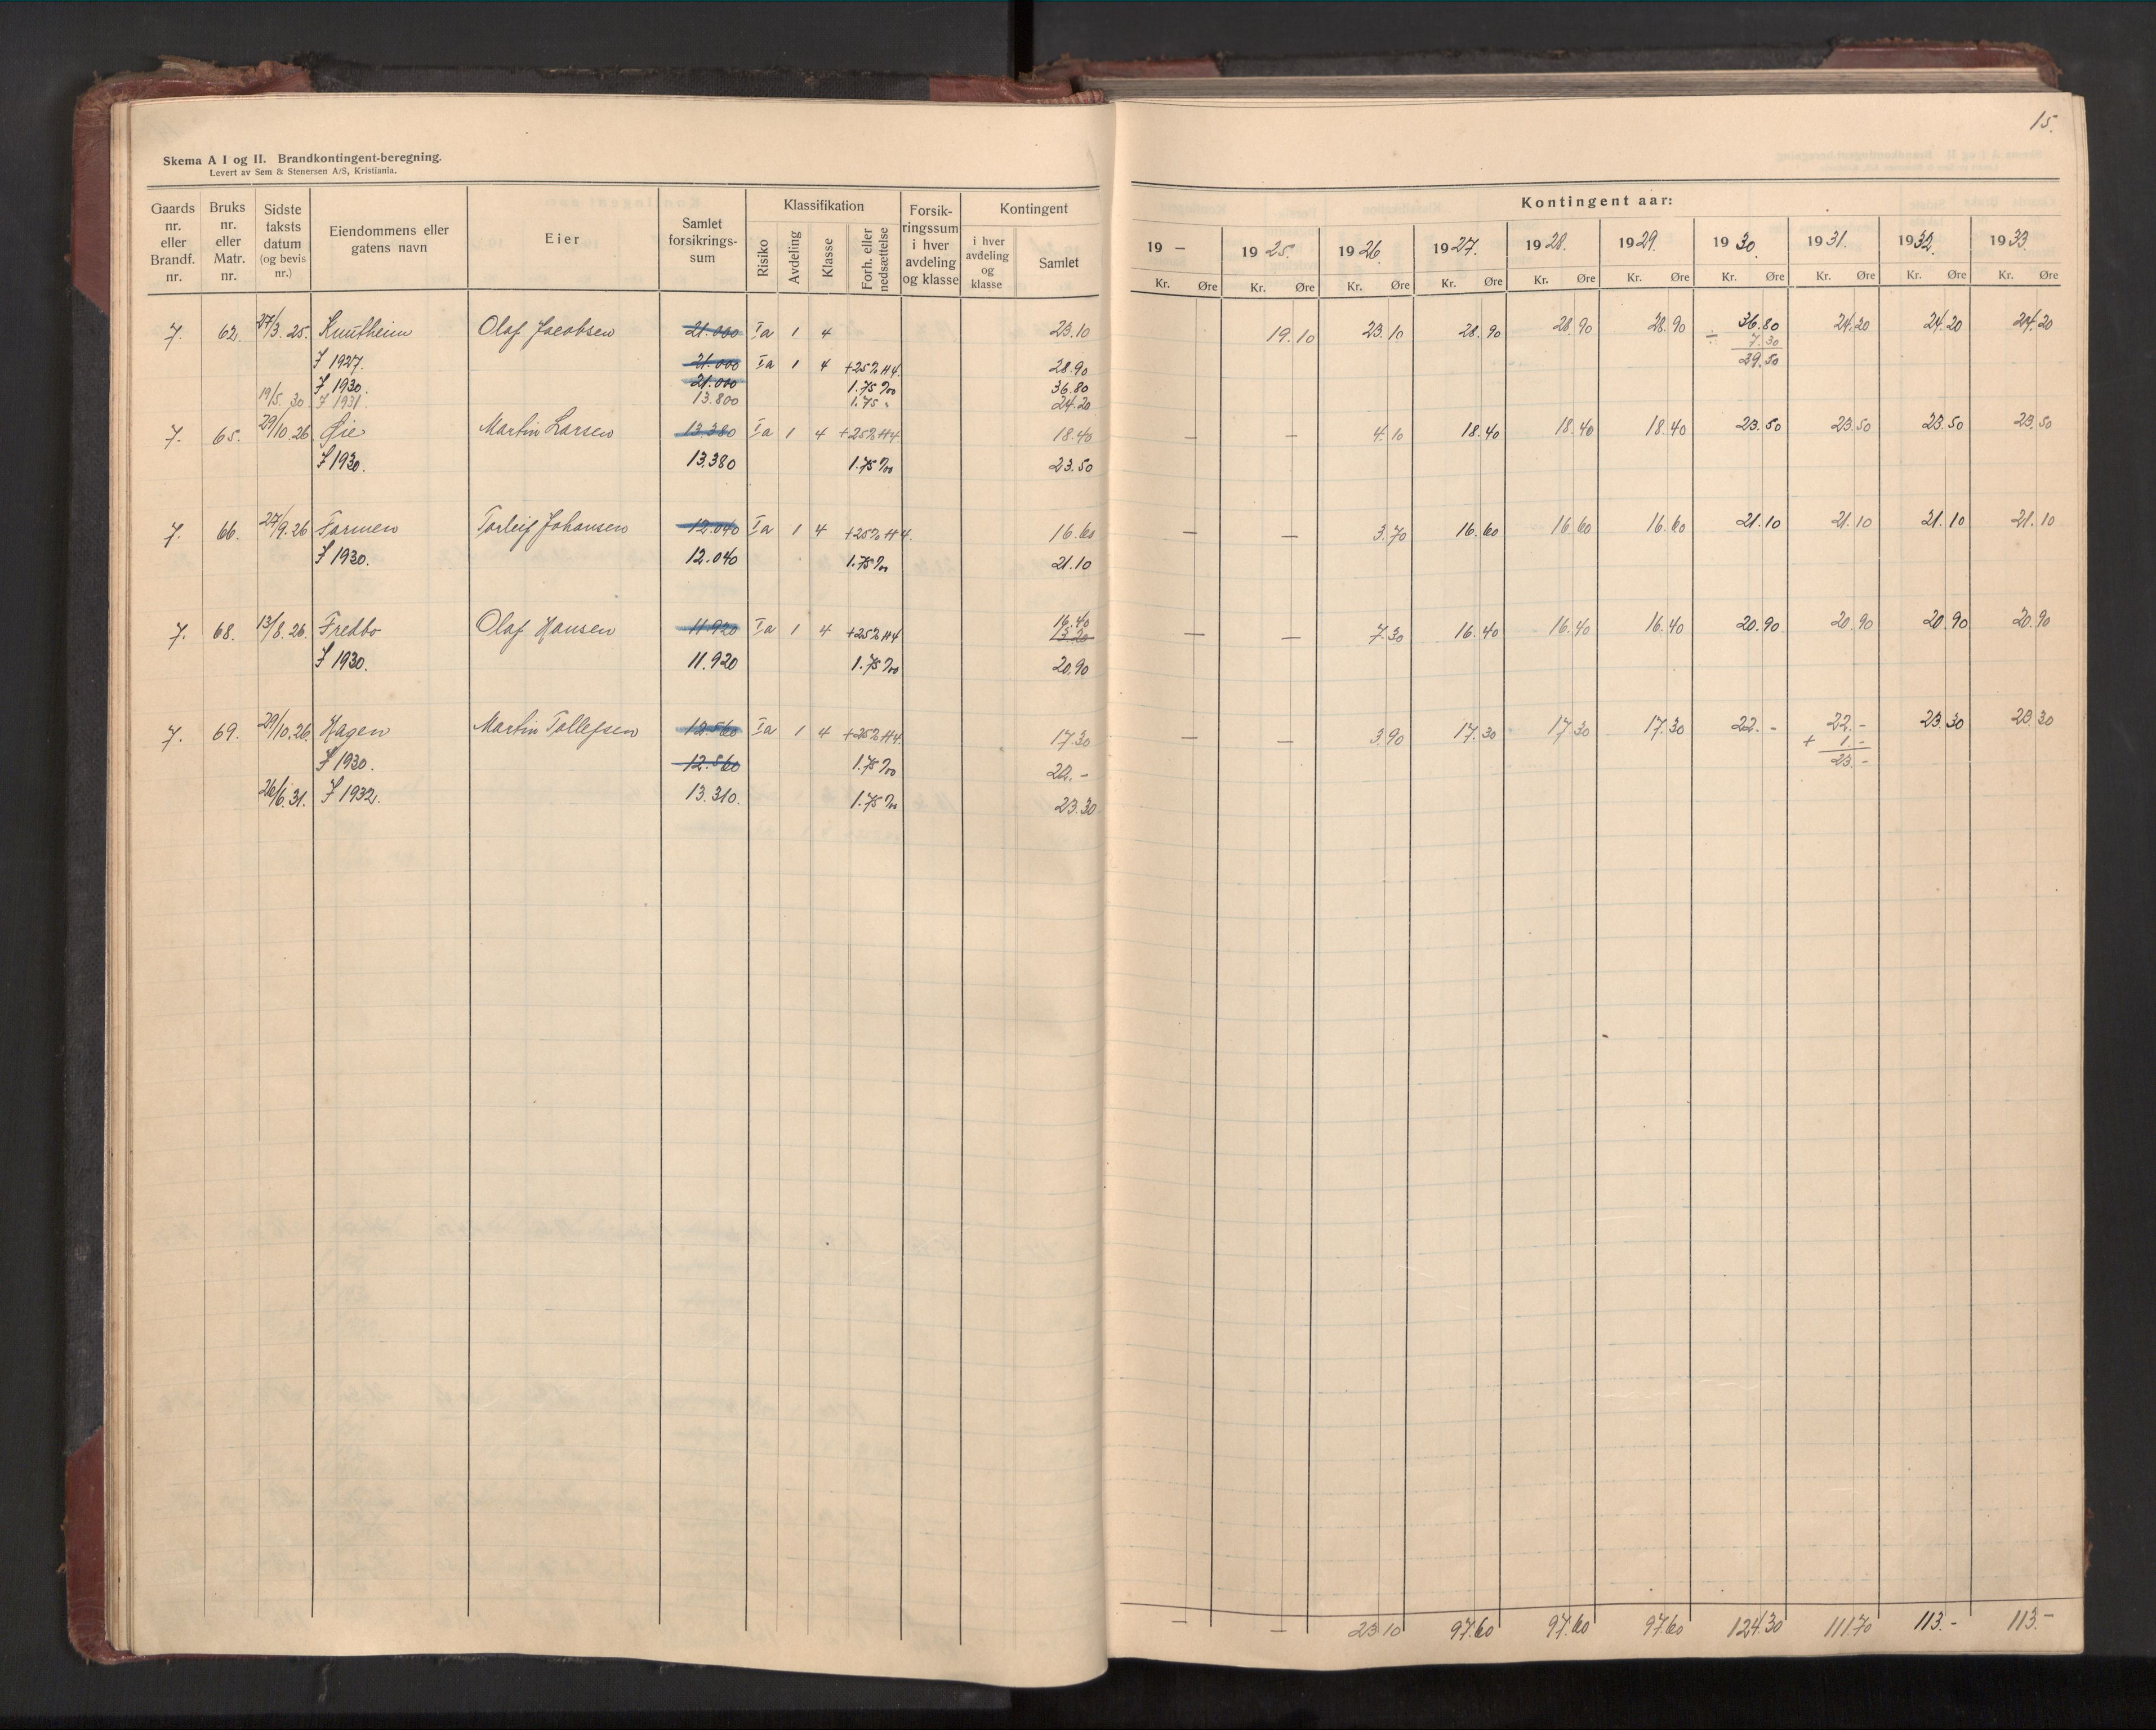 15.
Skema A I og II. Brandkontingent-beregning.
Levert av Sem & Stenersen A/S, Kristiania.
Gaards nr. eller Brandf. nr. | Bruks nr. eller Matr. nr. | Sidste taksts datum (og bevis nr.) | Eiendommens eller gatens navn | Eier | Samlet forsikrings-sum | Klassifikation | Risiko | Avdeling | Klasse | Forh. eller nedsættelse | Forsik-ringssum i hver avdeling og klasse | Kontingent | i hver avdeling og klasse | Samlet
Kontingent aar:
19 – | 1925. | 1926. | 1927. | 1928. | 1929. | 1930. | 1931. | 1932. | 1933.
Kr. Øre | Kr. Øre | Kr. Øre | Kr. Øre | Kr. Øre | Kr. Øre | Kr. Øre | Kr. Øre | Kr. Øre | Kr. Øre
7. 62. 27/3. 25. Knutheim Olaf Jacobsen 21.000 Ia 1 4 23.10 19.10 23.10 28.90 28.90 28.90 36.80 24.20 24.20 24.20
÷ 7.30
F 1927. 21.000 Ia 1 4 +25% H4. 28.90 29.50
F 1930. 21.000 1.75‰ 36.80
19/5. 30. F 1931. 13.800 1.75 " 24.20
7. 65. 29/10. 26 Øie Martin Larsen 13.380 Ia 1 4 +25% H4 18.40 – – 4.10 18.40 18.40 18.40 23.50 23.50 23.50 23.50
F 1930. 13.380 1.75‰ 23.50
7. 66. 27/9. 26 Farmen Torleif Johansen 12.040 Ia 1 4 +25% H4. 16.60 – – 3.70 16.60 16.60 16.60 21.10 21.10 21.10 21.10
F 1930. 12.040 1.75‰ 21.10
16.40
7. 68. 13/8. 26. Fredbo Olaf Hansen 11.920 Ia 1 4 +25% H4 13.20 – – 7.30 16.40 16.40 16.40 20.90 20.90 20.90 20.90
F 1930. 11.920 1.75‰ 20.90
7. 69. 29/10. 26. Hagen Martin Tollefsen 12.560 Ia 1 4 +25% H4. 17.30 – – 3.90 17.30 17.30 17.30 22.- 22.- 23.30 23.30
+ 1.-
F 1930. 12.560 1.75‰ 22.- 23.-
26/6. 31. F 1932. 13.310. 1.75‰ 23.30
– – 23.10 97.60 97.60 97.60 124.30 111.70 113.- 113.-